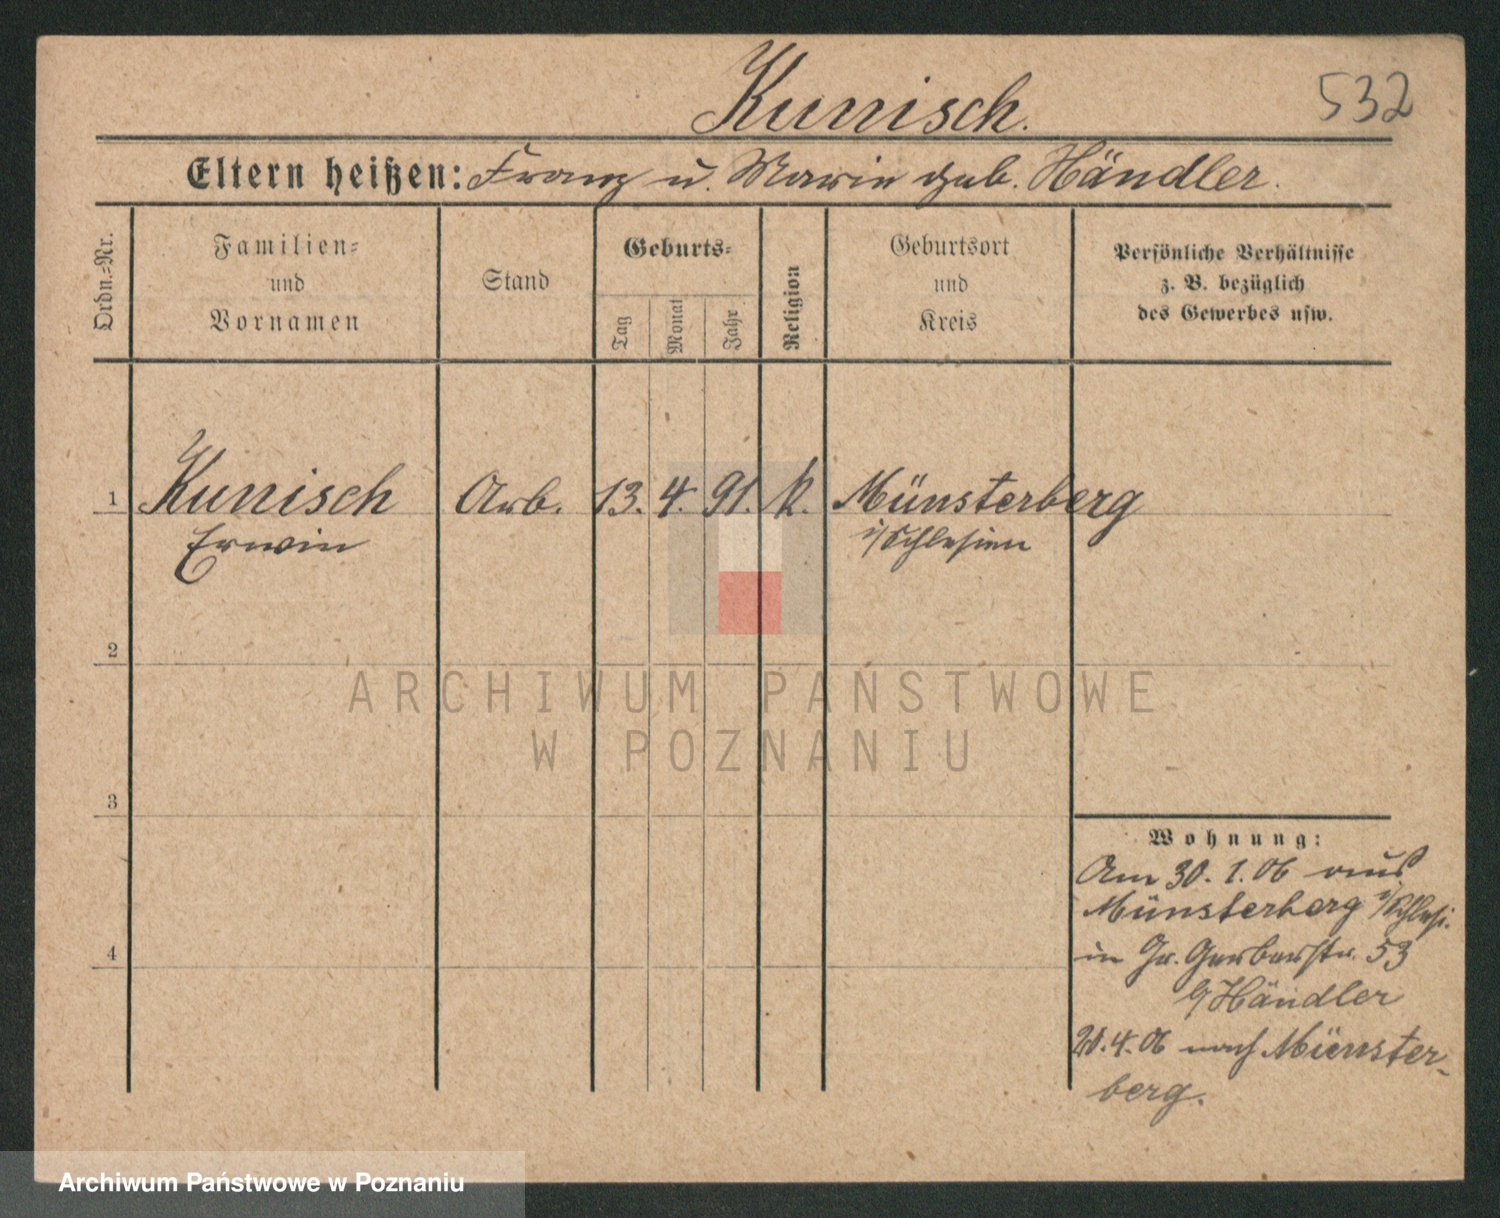 Kunisch.
532
Eltern heißen: Franz u. Marie geb. Händler.
Ordn.=Nr.
Familien=
und
Vornamen
Stand
Geburts=
Tag
Monat
Jahr
Religion
Geburtsort
und
Kreis
Persönliche Verhältnisse
z. B. bezüglich
des Gewerbes usw.
1 Kunisch Arb. 13. 4. 91. k. Münsterberg
Erwin i/Schlesien
2
ARCHIWUM PAŃSTWOWE
W POZNANIU
3
Wohnung:
Am 30. 1. 06 aus
Münsterberg i/Schlesi.
4
in Gr. Gerberstr. 53
b/Händler
20. 4. 06 nach Münster-
berg.
Archiwum Państwowe w Poznaniu